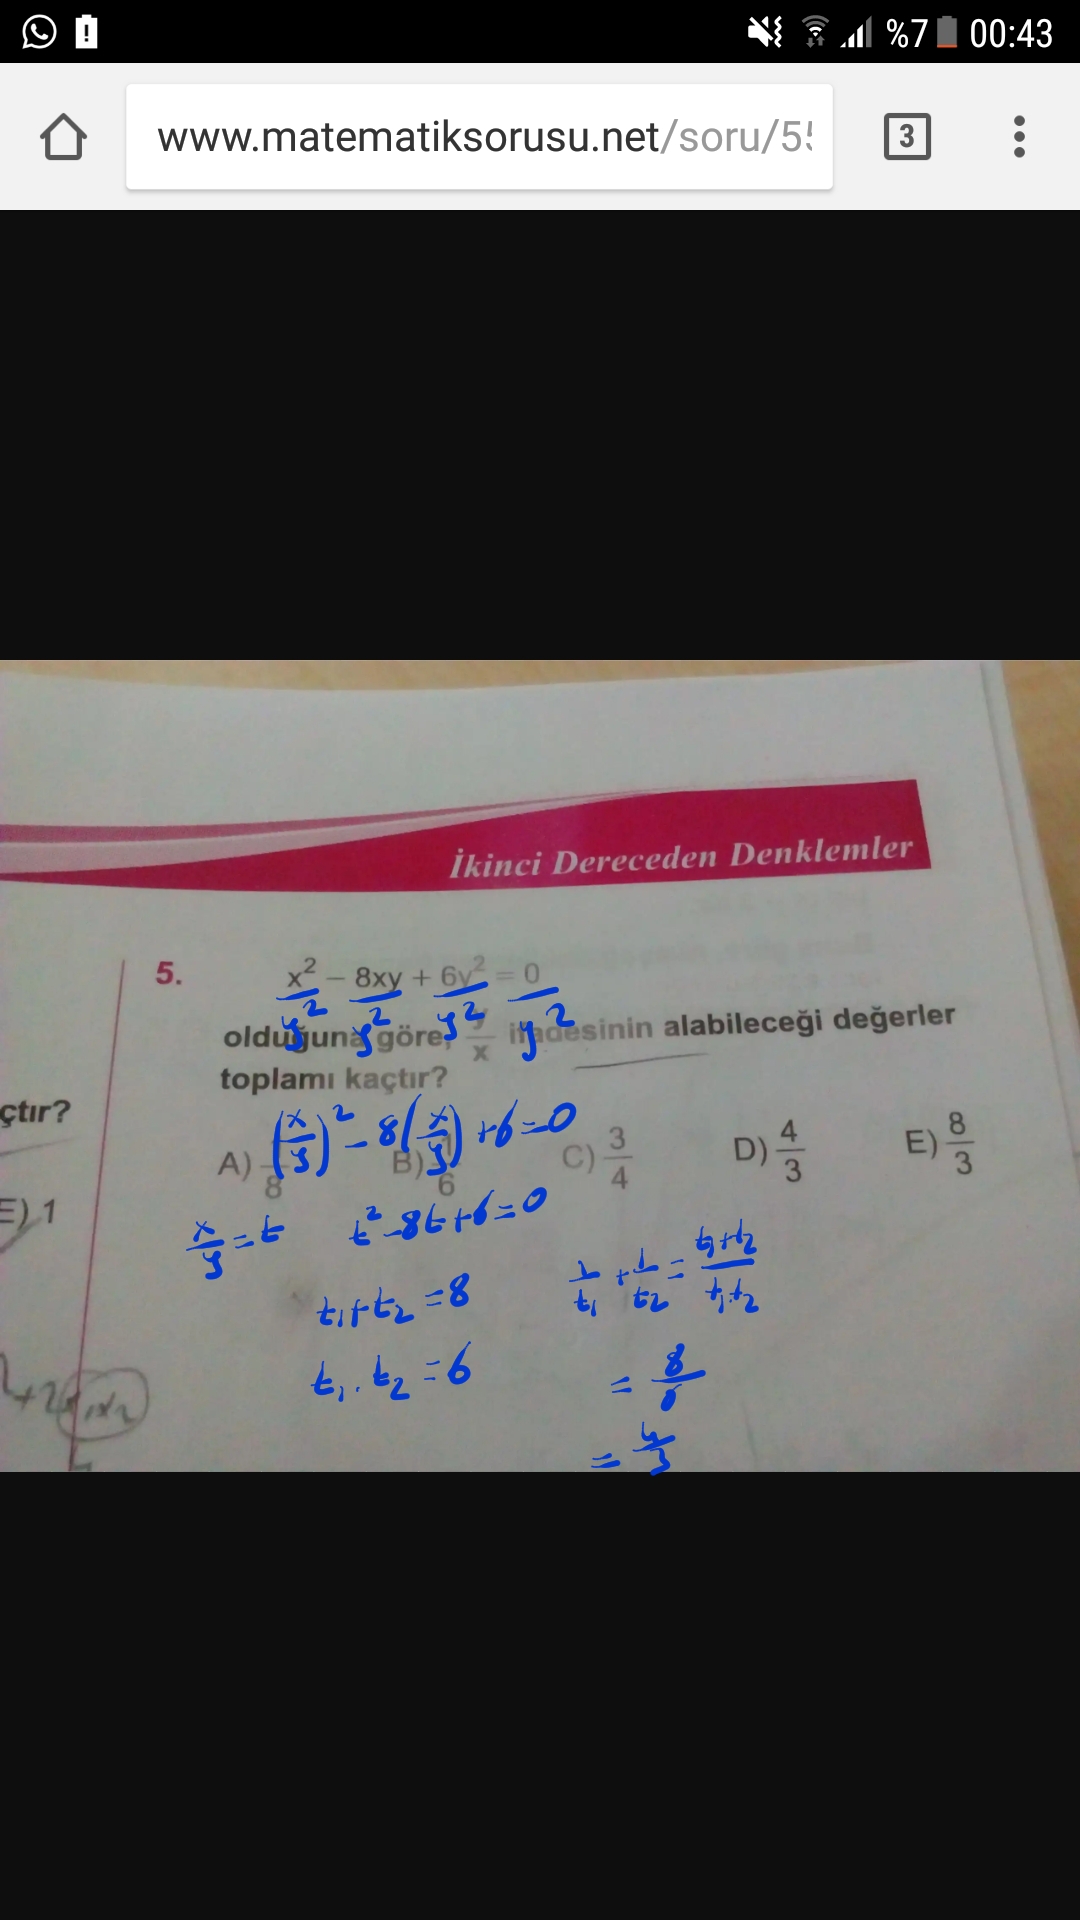 %7 00:43
www.matematiksorusu.net/soru/55
3
İkinci Dereceden Denklemler
5. x² – 8xy + 6y² = 0
y² y² y² y²
olduğuna göre, y/x ifadesinin alabileceği değerler
toplamı kaçtır?
çtır?
(x/y)² - 8(x/y) + 6 = 0
A) 1/8 B) 1/6 C) 3/4 D) 4/3 E) 8/3
E) 1
x/y = t t² - 8t + 6 = 0
t₁ + t₂ = 8 1/t₁ + 1/t₂ = t₁+t₂/t₁.t₂
t₁ . t₂ = 6 = 8/6
= 4/3